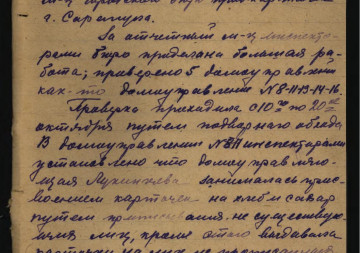 г. Сарапула.
За отчетный м-ц инспекто-
рами бюро проделана большая ра-
бота; проверено 5 домоуправлений
как-то домоуправление №8-11-13-14-16.
Проверка проходила с 10 по 20
октября путем подворного обхода
В домоуправлении №8 инспекторами
установлено что домоуправляю-
щая занималась прис-
воением карточек на хлеб и сахар
путем не существую-
щих лиц, кроме этого выдавала
карточки на лиц не